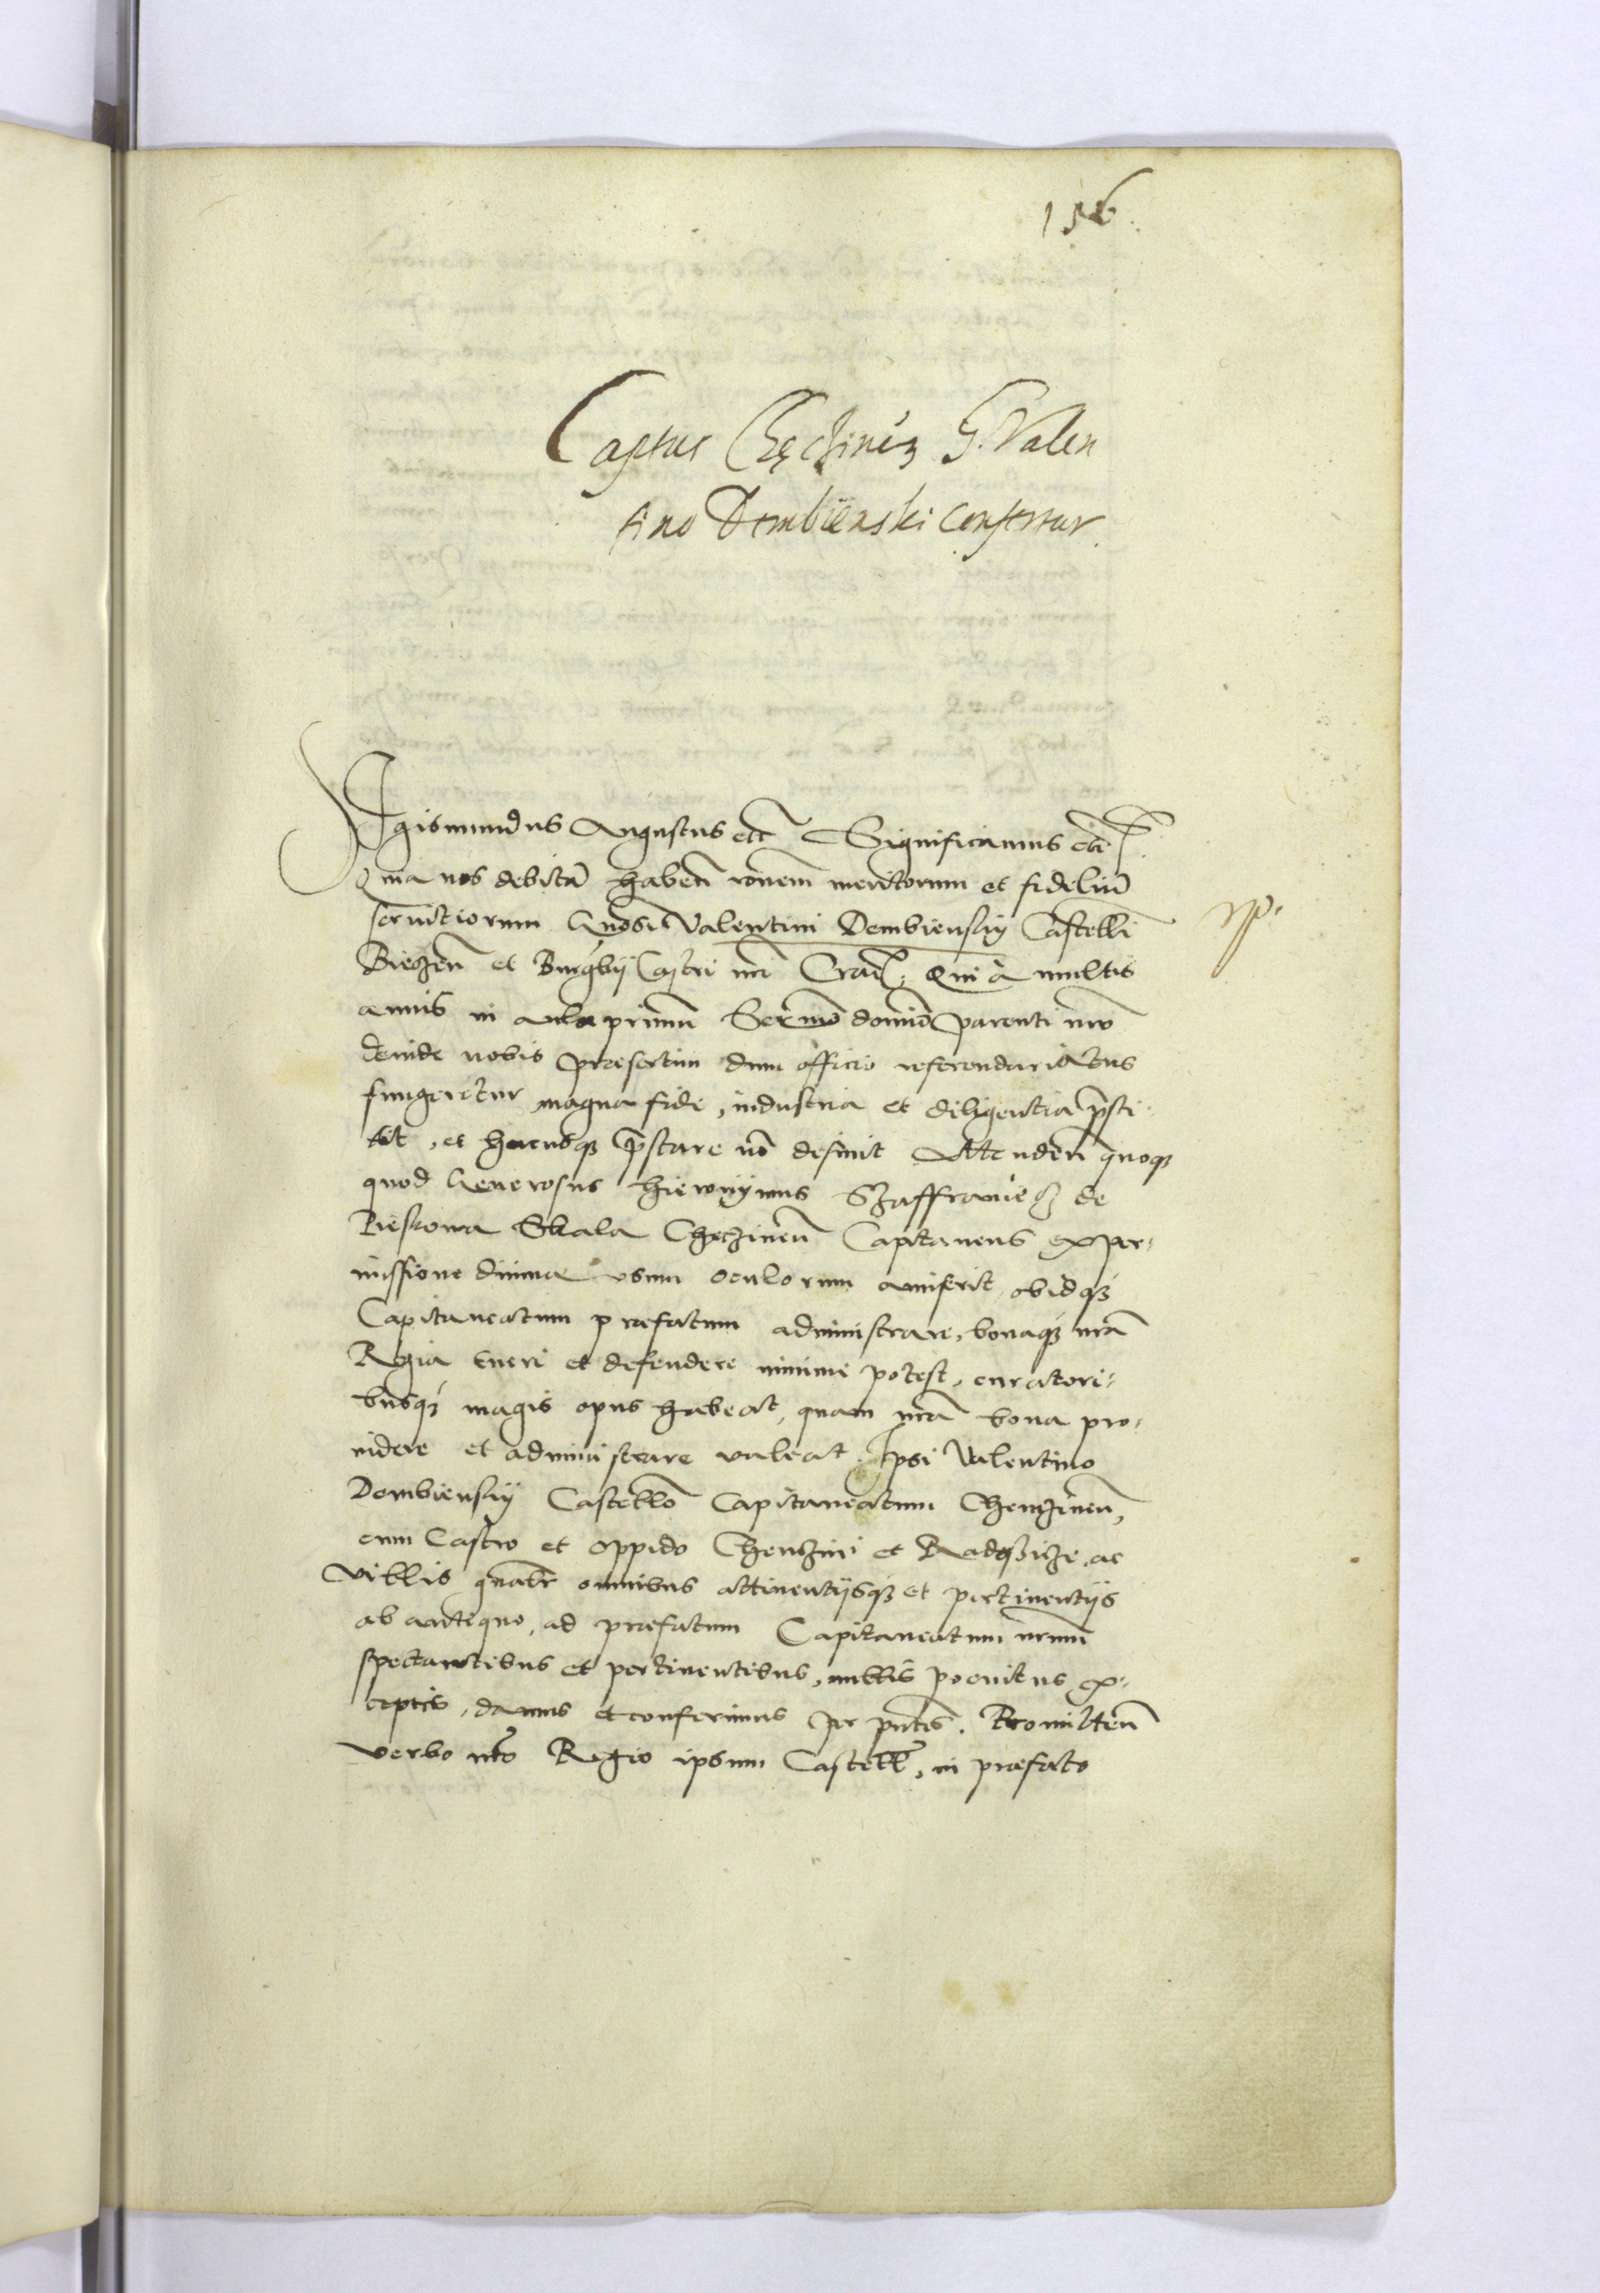 156.
Captus Chęchineń G. Valen
tino Dembienski confertur.
Sigismundus Augustus etc̃ Significamus etc̃
Quia nos debitã habeñ rõnem meritorum et fideliũ
seruitiorum Gñosi Valentini Dembiensky Castelli
Biezeñ et Burg̃bij Castri nr̃i Crac̃. Qui à multis
annis in aula primũ Ser̃mo domĩo parenti nr̃o
deinde nobis praesertim dum officio referendariatus
fungeretur magna fide, industria et diligentia p̃sti
tit, et hucusq̃ p̃stare nõ desinit Attendeñ quoq̃
quod Generosus Hieronymus Szaffraniecz de
Pieskowa Skala Chęczineñ Capitaneus ex per-
missione diuina usum oculorum amiserit, obidq̃
Capitaneatum praefatum administrare, bonaq̃ nr̃a
Regia tueri et defendere minime potest, curatori-
busq̃ magis opus habeat, quam nr̃a bona pro-
uidere et administrare valeat. Ipsi Valentino
Dembiensky Castellõ Capitaneatum Chenczineñ,
cum Castro et oppido Chenczini et Radoszicze, ac
villis quatr̃ omnibus attinentijsq̃ et pertinentijs
ab antiquo, ad praefatum Capitaneatum nr̃um
spectantibus et pertinentibus, nullis poenitus ex-
ceptis, damus et conferimus per pñtes. Promitteñ
verbo nr̃o Regio ipsum Castell̃, in praefato